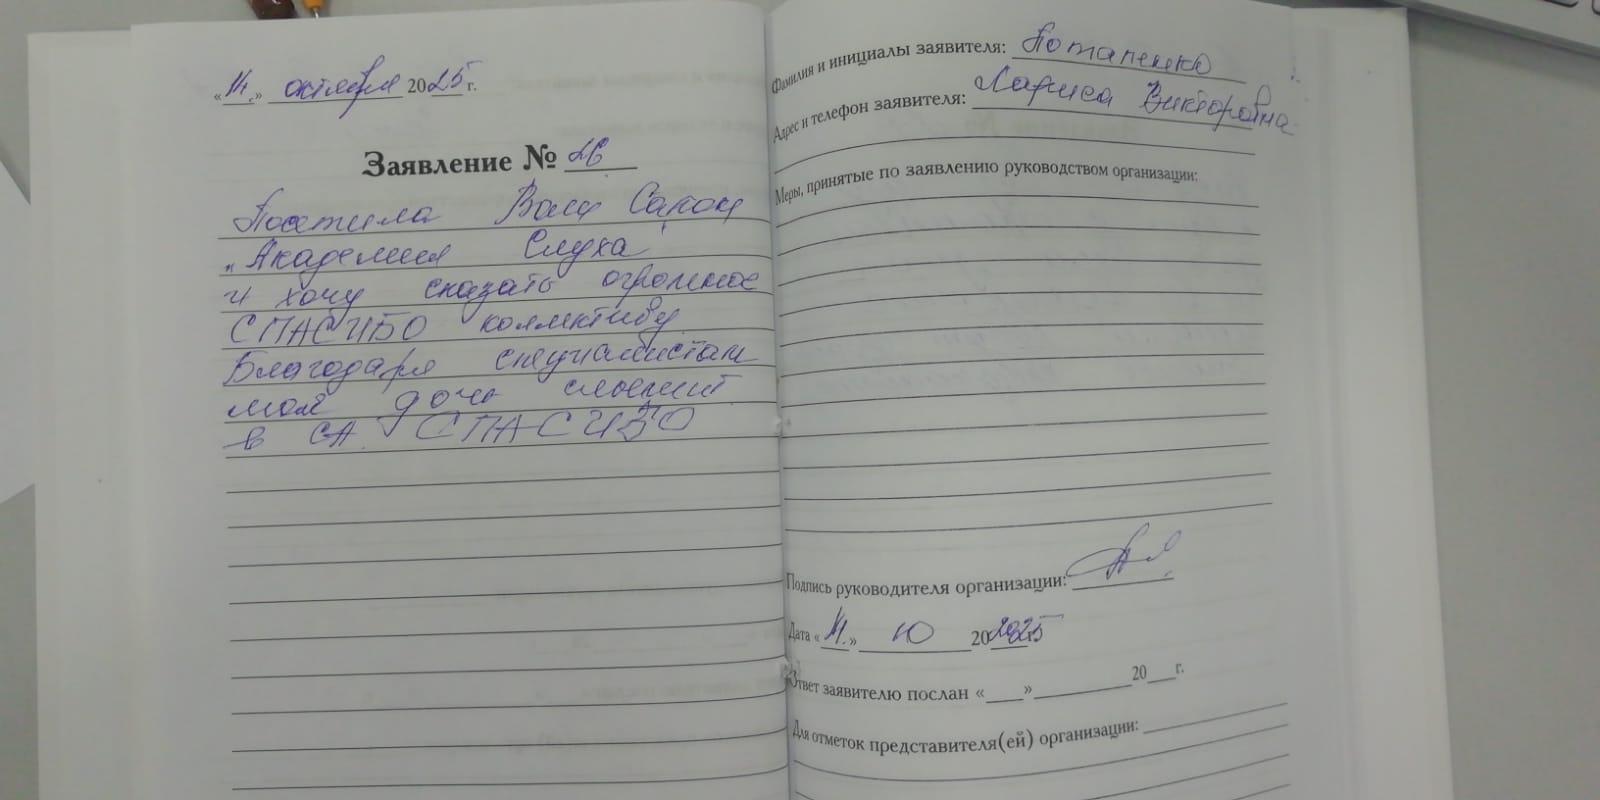 «14.» октября 2025 г.
Заявление № 26
Посетила Ваш Салон
"Академия Слуха"
и хочу сказать огромное
СПАСИБО коллективу.
Благодаря специалистам
моя дочь слышит
в СА. СПАСИБО
Фамилия и инициалы заявителя: Потапенко
Адрес и телефон заявителя: Лариса Викторовна
Меры, принятые по заявлению руководством организации:
Подпись руководителя организации:
Дата «14.» 10 20 2025
Ответ заявителю послан «___» 20___г.
Для отметок представителя(ей) организации: